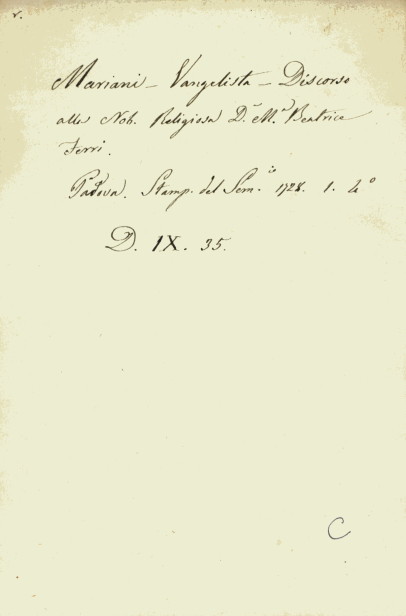 v.
Mariani - Vangelista - Discorso
alla Nob. Religiosa D.ª M.ª Beatrice
Ferri.
Padova. Stamp. del Sem.io 1728. 1. 4º
D. IX. 35.
C